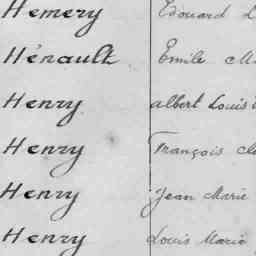 Hemery Edouard
Hénault Emile
Henry albert Louis
Henry François
Henry Jean Marie
Henry Louis Marie